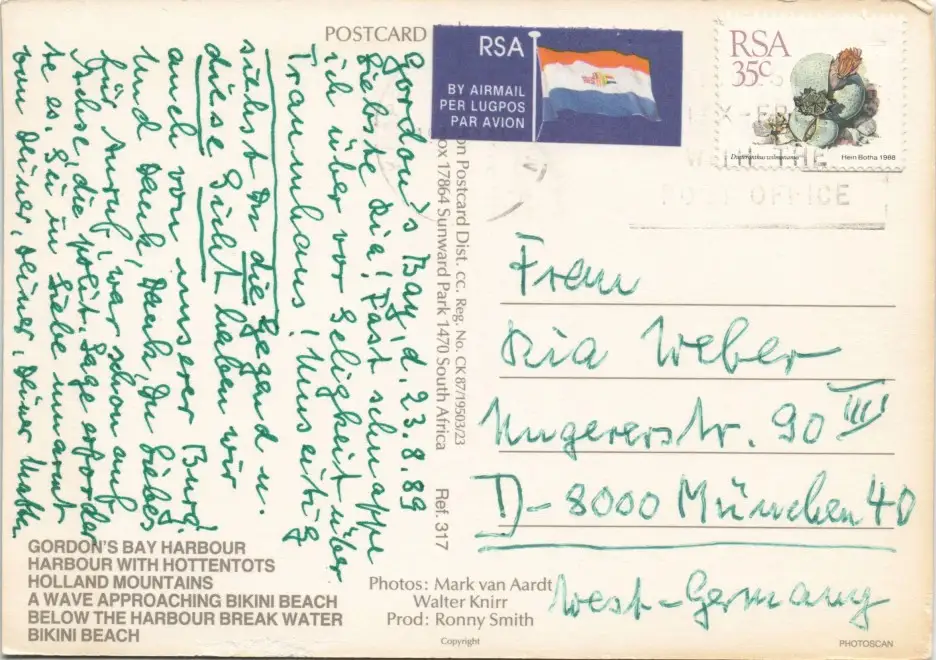 POSTCARD
RSA
BY AIRMAIL
PER LUGPOS
PAR AVION
RSA
35c
Hein Botha 1988
WITH THE
POST OFFICE
Gordon's Bay, d. 23.8.89
Liebste Ria! Fast schnappe
ich über vor Seligkeit über
Traumhaus! Umseitig
siehst Du die Gegend u.
diese Sicht haben wir
auch von unserer Burg!
Und Dank, Dank, Du Liebes
für Anruf, war schon auf
Achse, die polit. Lage erforder
te es. Sei in Liebe umarmt
von Deiner, Deiner, Deiner
on Postcard Dist. cc. Reg. No. CK 87/19503/23
ox 17864 Sunward Park 1470 South Africa
Ref. 317
Frau
Ria Weber
Ungererstr. 90 III
D-8000 München 40
West-Germany
GORDON'S BAY HARBOUR
HARBOUR WITH HOTTENTOTS
HOLLAND MOUNTAINS
A WAVE APPROACHING BIKINI BEACH
BELOW THE HARBOUR BREAK WATER
BIKINI BEACH
Photos: Mark van Aardt
Walter Knirr
Prod: Ronny Smith
Copyright
PHOTOSCAN